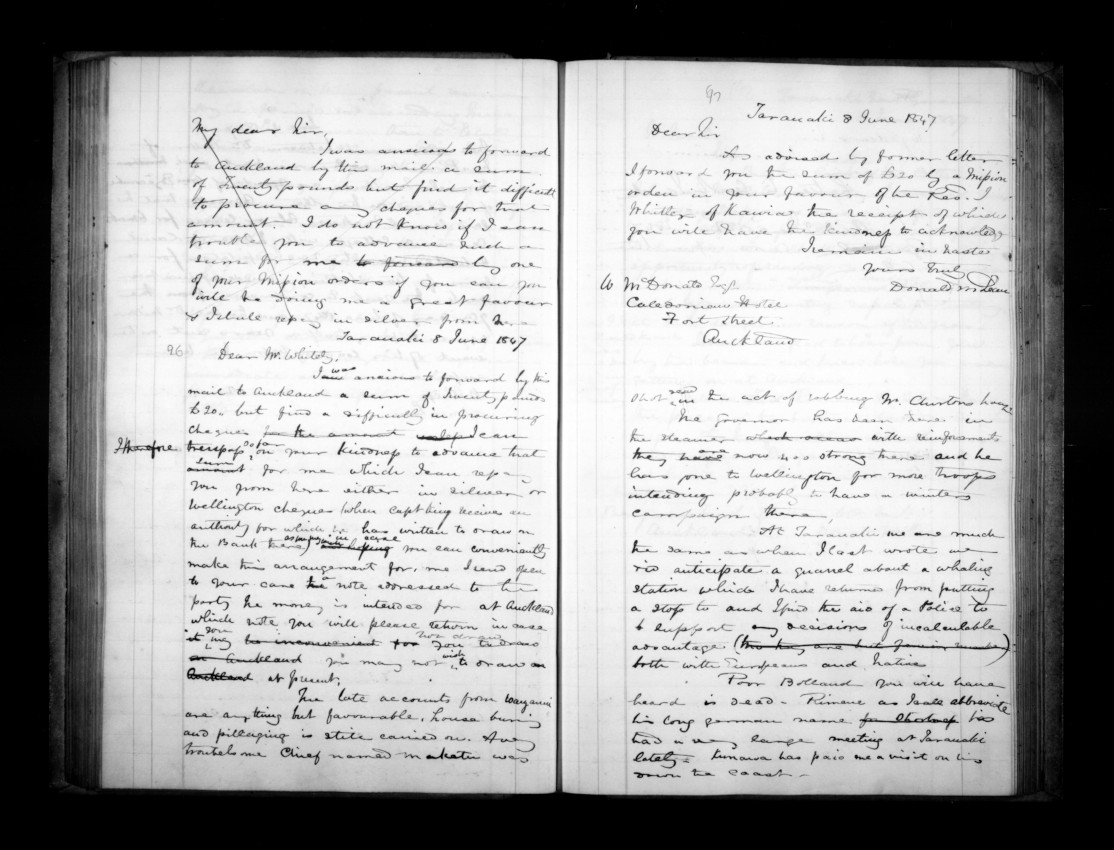 My dear Sir,
I was anxious to forward
to Auckland by this mail a sum
of Twenty pounds but find it difficult
to procure any cheques for that
amount. I do not know if I can
trouble you to advance such a
sum for me to forward by one
of your Mission orders if you can you
will be doing me a great favour
& I shall repay in silver from here
Taranaki 8 June 1847
96 Dear Mr. Whiteley,
was
I am anxious to forward by this
mail to Auckland a sum of Twenty pounds
£20,, but find a difficulty in procuring
cheques for the amount I can
so far
I therefore trespass on your kindness to advance that
sum
amount for me which I can repay
you from here either in silver or
Wellington cheques (when Capt King receives an
authority for which he has written to draw on
in case
the Bank here) and hoping you can conveniently
make this arrangement for me I send open
to your care the note addressed to the
party the money is intended for at Auckland
which note you will please return in case
you not draw
it may be inconvenient for you to draw
wish
on Auckland you may not to draw on
Auckland at present.
The late accounts from Wanganui
are anything but favourable, house burning
and pillaging is still carried on. A very
troublesome Chief named Maketu was
97
Taranaki 8 June 1847
Dear Sir
As advised by former letter
I forward you the sum of £20 by a Mission
order in your favour of the Rev. J.
Whitley of Kawia the receipt of which
you will have the kindness to acknowledge
I remain in haste
yours truly
Donald McLean
To McDonald Esqr.
Caledonian Hotel
Fort Street.
Auckland
shot in the act of robbing Mr. Churton's house
The Governor has been here in
the steamer which with reinforcements
are
they have now 400 strong there and he
has gone to Wellington for more troops
intending probably to have a winters
campaign there,
At Taranaki we are much
the same as when I last wrote we
did anticipate a quarrel about a whaling
station which I have returned from putting
a stop to and I find the aid of a Police to
support my decisions of incalculable
advantage (tho they are but few in number)
both with Europeans and native
Poor Bolland you will have
heard is dead - Rimene as I call abbreviate
his long german name for shortness he
had a very large meeting at Taranaki
lately - has paid me a visit on his
down the coast -